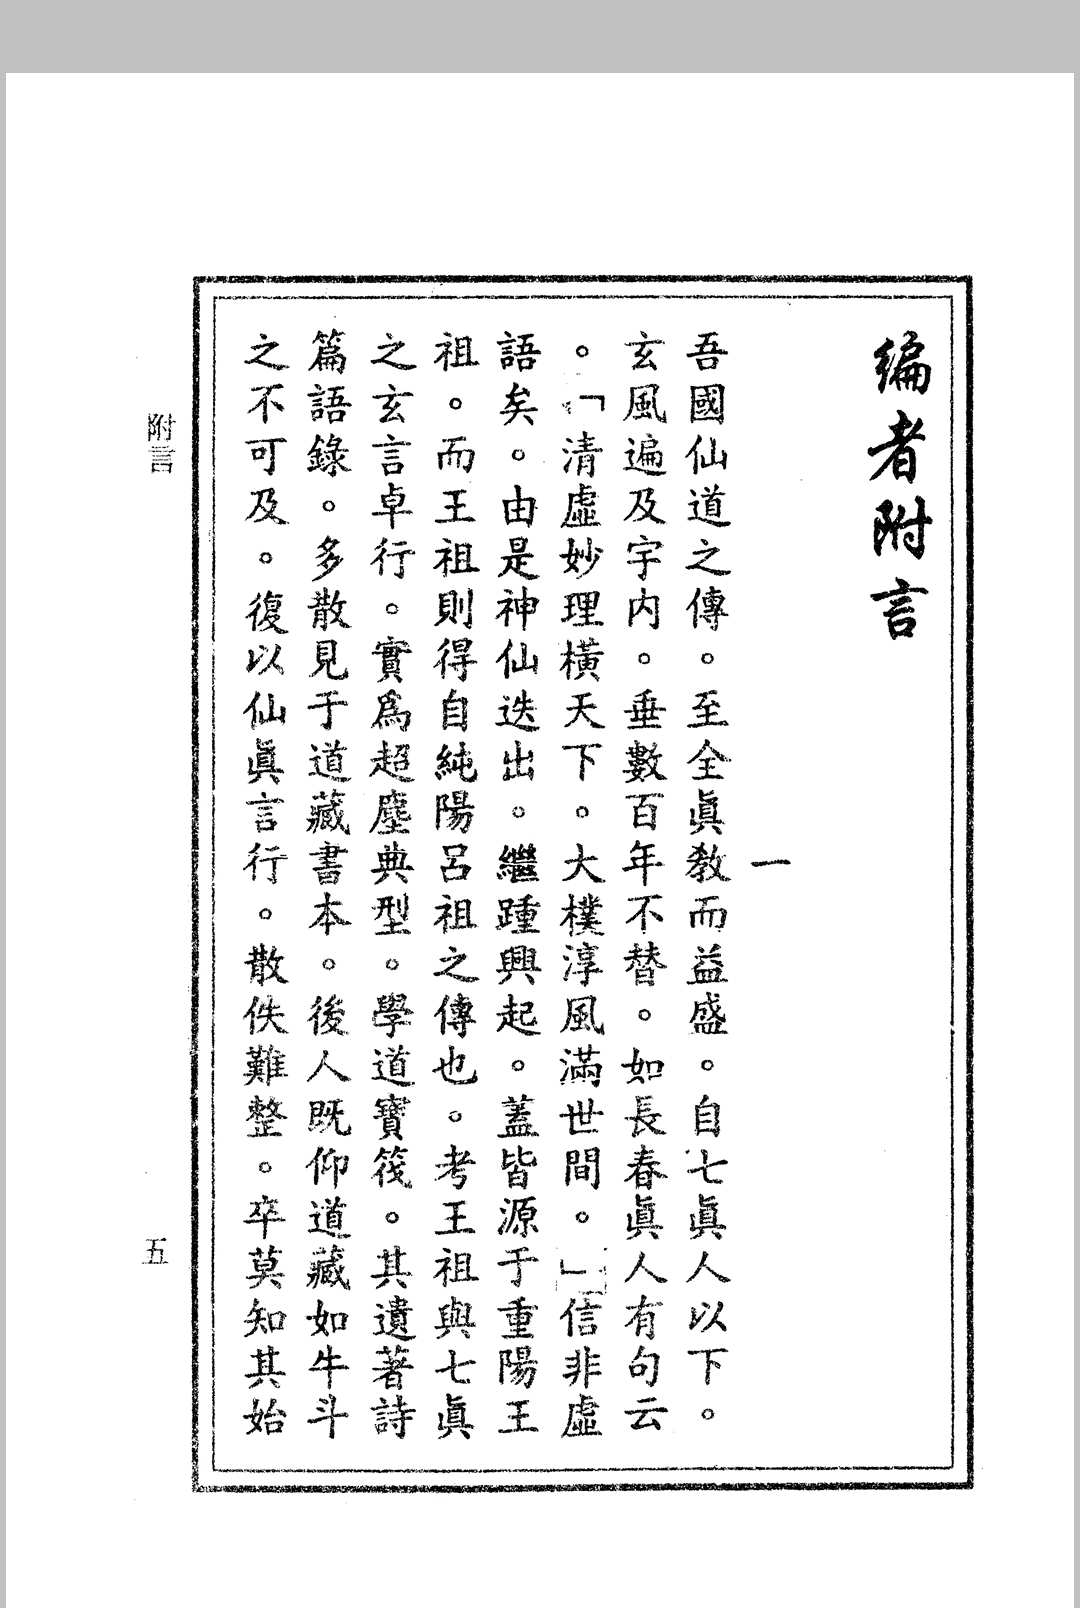 編者附言
一
吾國仙道之傳。至全眞教而益盛。自七眞人以下。
玄風遍及宇内。垂數百年不替。如長春眞人有句云
。「清虛妙理橫天下。大樸淳風滿世間。」信非虛
語矣。由是神仙迭出。繼踵興起。蓋皆源于重陽王
祖。而王祖則得自純陽呂祖之傳也。考王祖與七眞
之玄言卓行。實爲超塵典型。學道寶筏。其遺著詩
篇語錄。多散見于道藏書本。後人既仰道藏如牛斗
之不可及。復以仙眞言行。散佚難整。卒莫知其始
附言
五